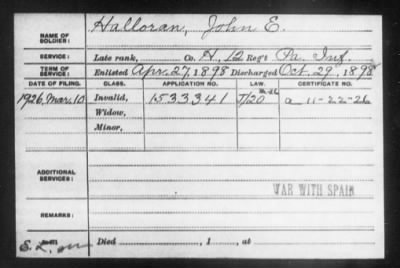 NAME OF SOLDIER: Halloran, John E.
SERVICE: Late rank, Co. H, 12 Reg't Pa. Inf.
TERM OF SERVICE: Enlisted Apr. 27, 1898 Discharged Oct. 29, 1898
DATE OF FILING. CLASS. APPLICATION NO. LAW. CERTIFICATE NO.
1926, Mar. 10 Invalid, 1533341 a 11-22-26
Widow,
Minor,
ADDITIONAL SERVICES:
WAR WITH SPAIN
REMARKS:
Died , 1 , at